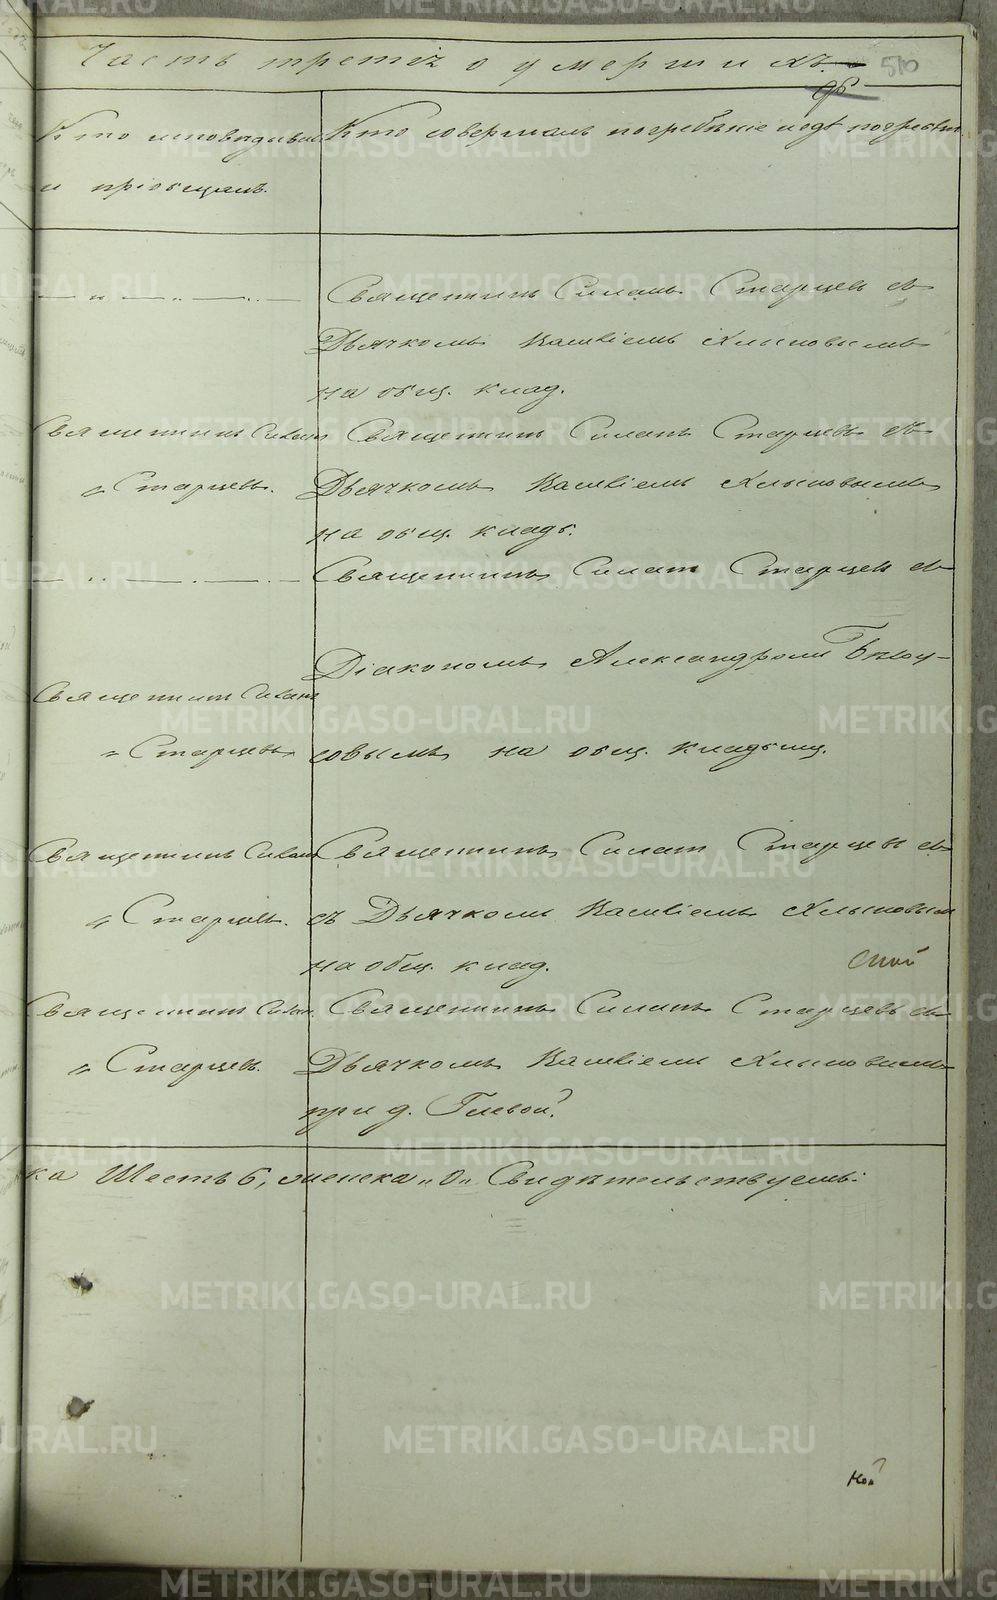 Часть третія о умершихъ.
510
96
Кто исповѣдывалъ
и пріобщалъ.
Кто совершалъ погребѣніе и гдѣ погребен
Священникъ Силанъ Старцевъ съ
Дьячкомъ Хлыновымъ
на общ. клад.
Священникъ Силанъ
Старцевъ.
Священникъ Силанъ Старцевъ съ
Дьячкомъ Хлыновымъ
на общ. кладь.
Священникъ Силанъ Старцевъ съ
Діакономъ Александромъ Бѣлоу-
совымъ на общ. кладбищ.
Священникъ Силанъ
Старцевъ
Священникъ Силанъ
Старцевъ.
Священникъ Силанъ Старцевъ съ
съ Дьячкомъ Хлыновым
на общ. клад.
Священникъ Силан.
Старцевъ.
Священникъ Силанъ Старцевъ съ
Дьячкомъ Хлыновымъ
при д. Глевой.
ка Шесть 6, женска „0„ Свидѣтельствуемъ:
ной
METRIKI.GASO-URAL.RU